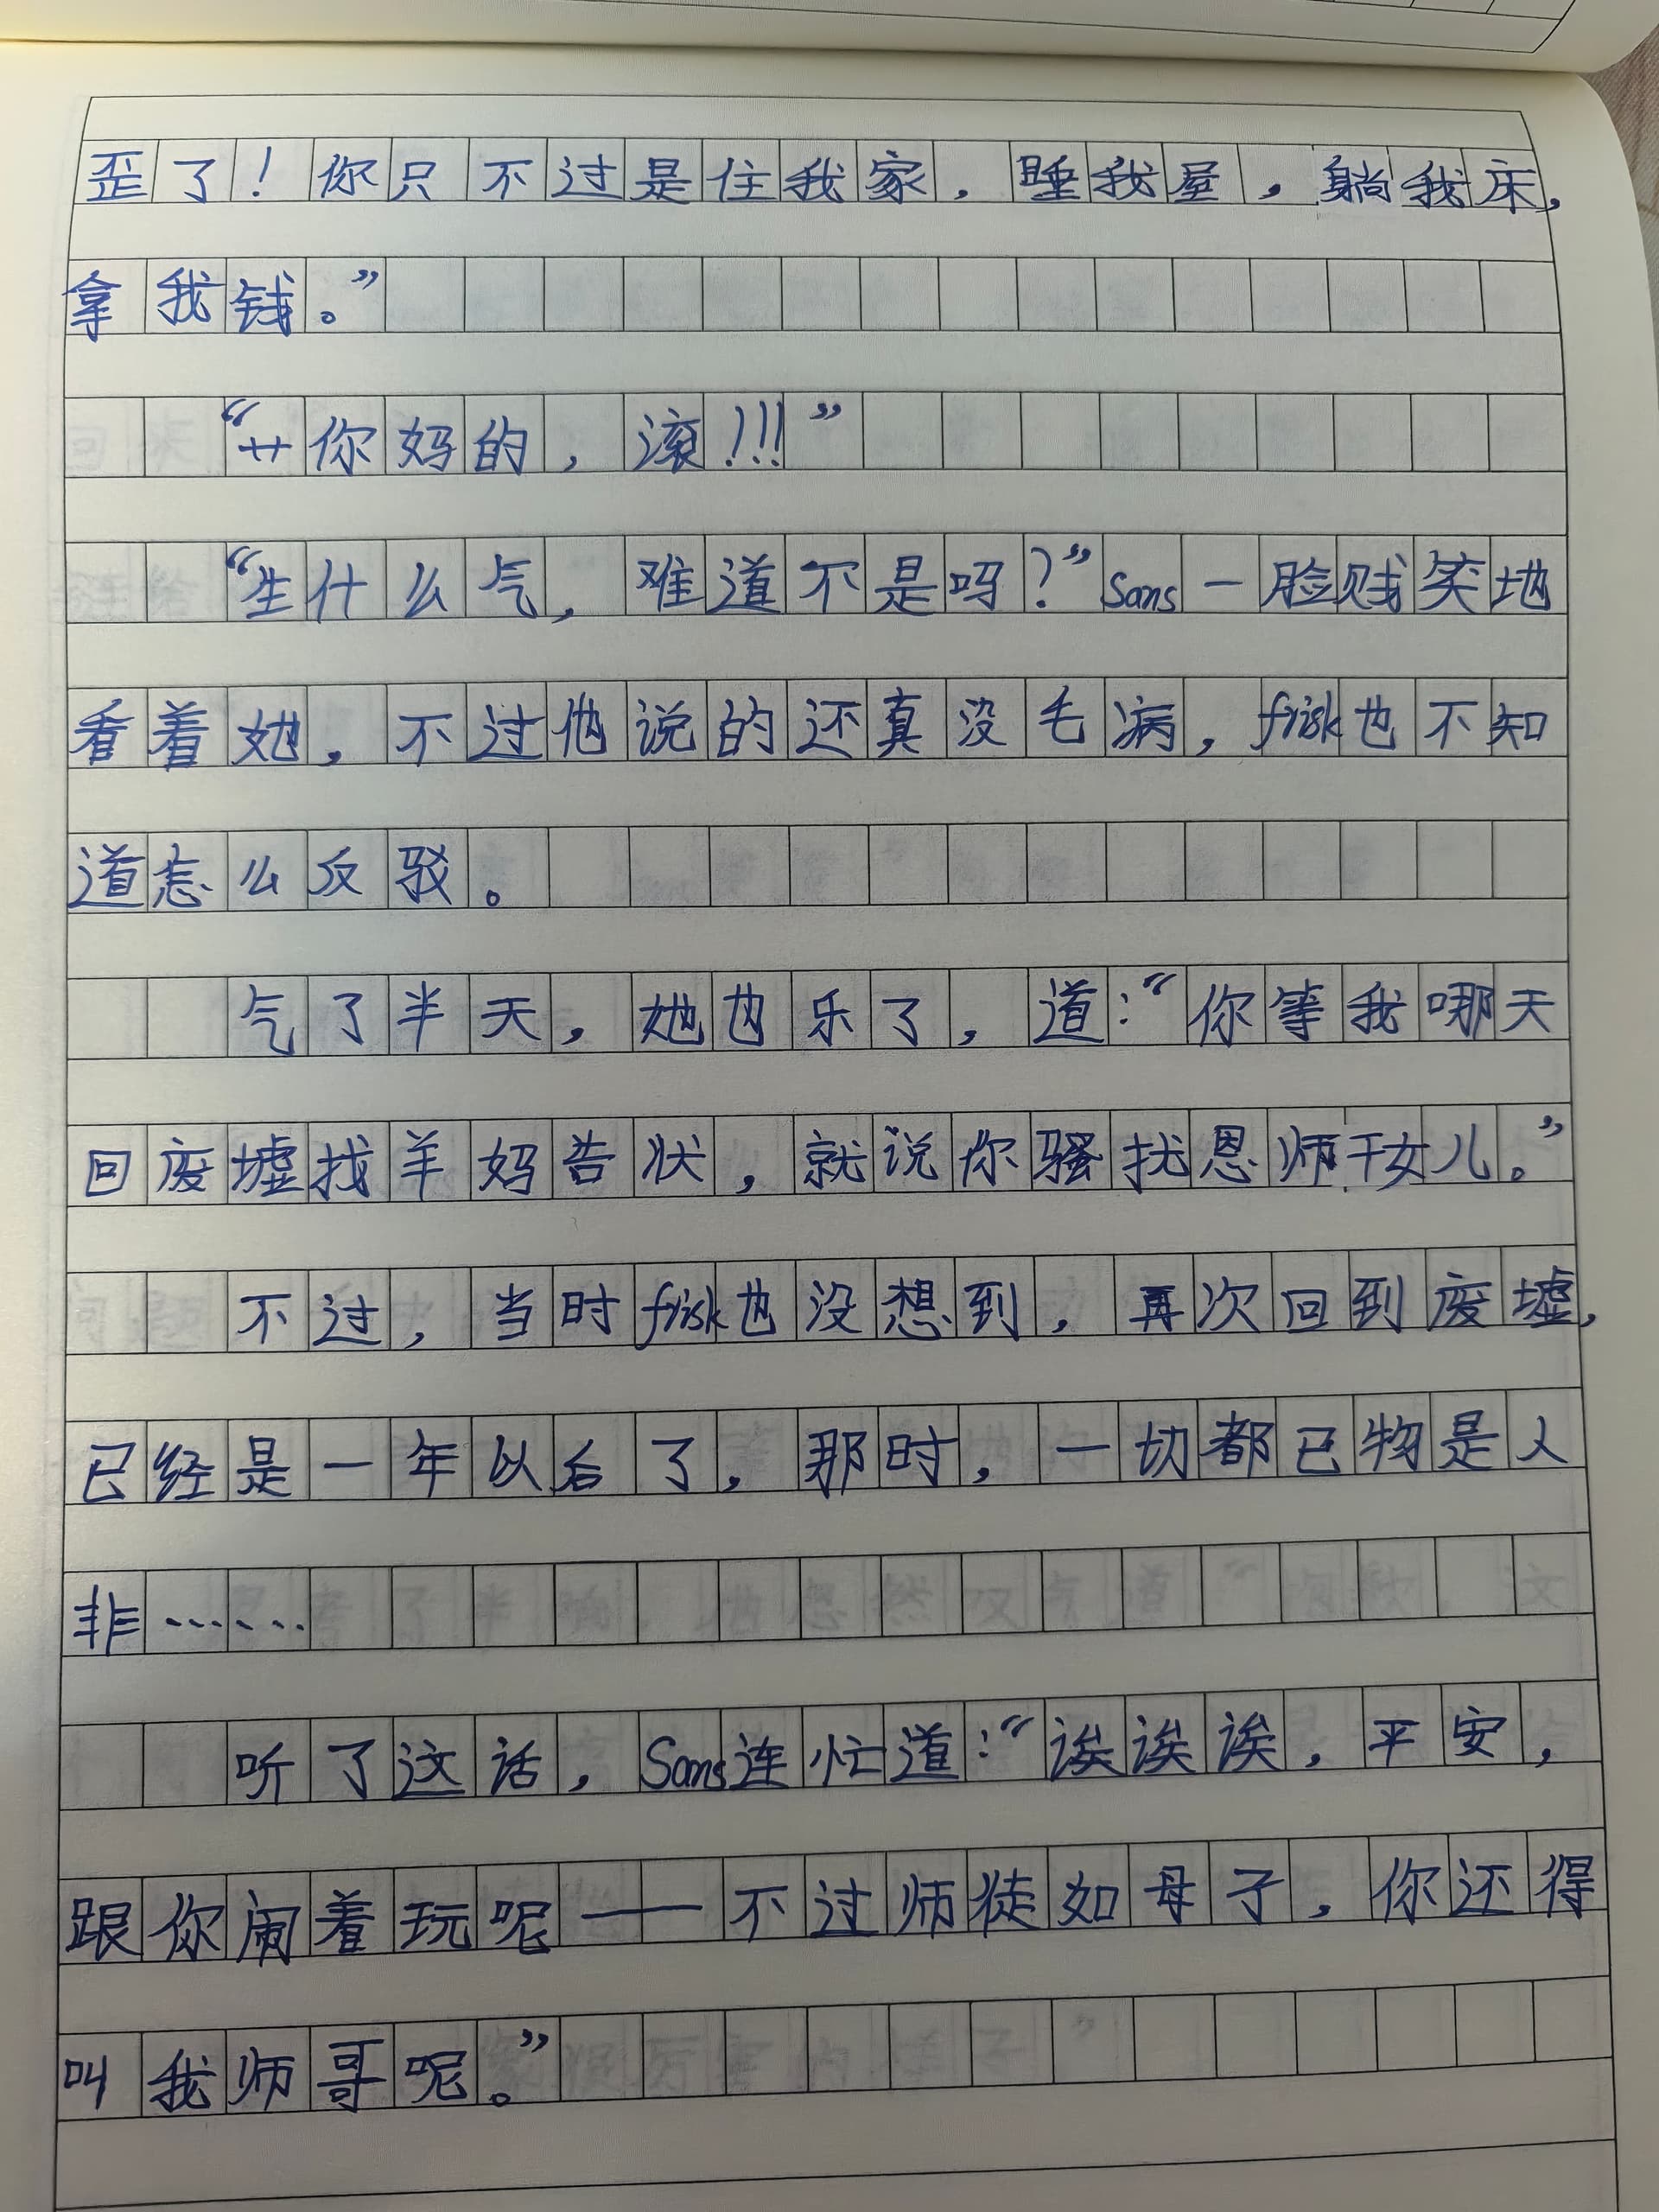 歪了！你只不过是住我家，睡我屋，躺我床，
拿我钱。”
“艹你妈的，滚！！！”
“生什么气，难道不是吗？”Sans一脸贱笑地
看着她，不过他说的还真没毛病，frisk也不知
道怎么反驳。
气了半天，她也乐了，道：“你等我哪天
回废墟找羊妈告状，就说你骚扰恩师干女儿。”
不过，当时frisk也没想到，再次回到废墟，
已经是一年以后了，那时，一切都已物是人
非……
听了这话，Sans连忙道：“诶诶诶，平安，
跟你闹着玩呢——不过师徒如母子，你还得
叫我师哥呢。”